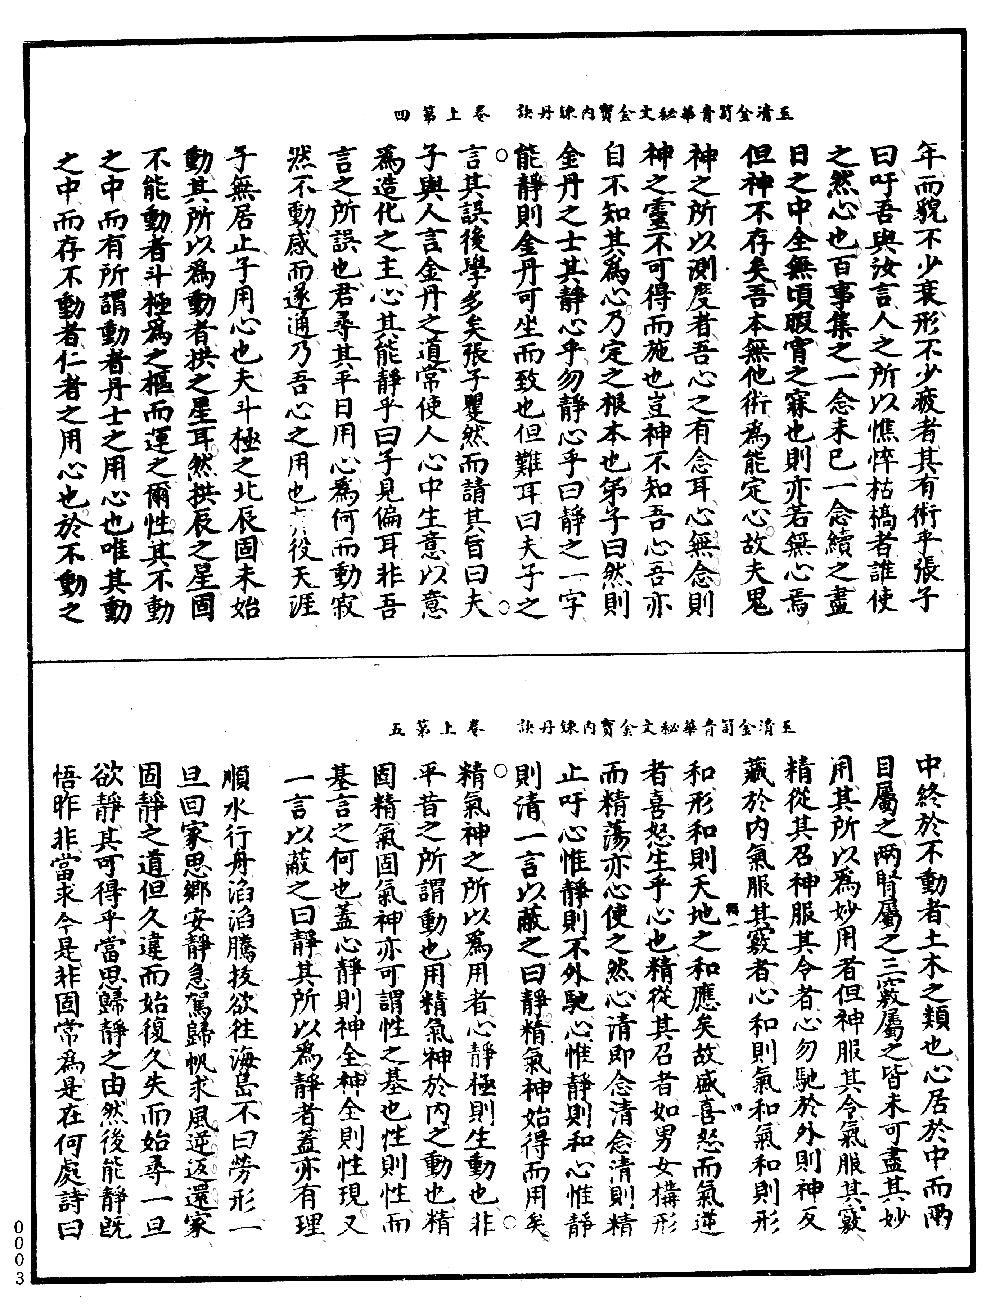 玉清金笥青華秘文金寶內煉丹訣　卷上　第四
年而貌不少衰形不少疲者其有術乎張子
曰吁吾與汝言人之所以憔悴枯槁者誰使
之然心也百事集之一念未已一念續之盡
日之中全無頃暇宵之寐也則亦若無心焉
但神不存矣吾本無他術爲能定心故夫鬼
神之所以測度者吾心之有念耳心無念則
神之靈不可得而施也豈神不知吾心吾亦
自不知其爲心乃定之根本也弟子曰然則
金丹之士其靜心乎勿靜心乎曰靜之一字
能靜則金丹可坐而致也但難耳曰夫子之
言其誤後學多矣張子瞿然而請其旨曰夫
子與人言金丹之道常使人心中生意以意
爲造化之主心其能靜乎曰子見偏耳非吾
言之所誤也君尋其平日用心爲何而動寂
然不動感而遂通乃吾心之用也役天涯
子無居止子用心也夫斗極之北辰固未始
動其所以爲動者拱之星耳然拱辰之星固
不能動者斗極爲之樞而運之爾性其不動
之中而有所謂動者丹士之用心也唯其動
之中而存不動者仁者之用心也於不動之
玉清金笥青華秘文金寶內煉丹訣　卷上　第五
中終於不動者土木之類也心居於中而兩
目屬之兩腎屬之三竅屬之皆未可盡其妙
用其所以爲妙用者但神服其令氣服其竅
精從其召神服其令者心勿馳於外則神反
藏於內氣服其竅者心和則氣和氣和則形
和形和則天地之和應矣故盛喜怒而氣逆
者喜怒生乎心也精從其召者如男女構形
而精蕩亦心使之然心清即念清念清則精
止吁心惟靜則不外馳心惟靜則和心惟靜
則清一言以蔽之曰靜精氣神始得而用矣
精氣神之所以爲用者心靜極則生動也非
平昔之所謂動也用精氣神於內之動也精
固精氣固氣神亦可謂性之基也性則性而
基言之何也蓋心靜則神全神全則性現又
一言以蔽之曰靜其所以爲靜者蓋亦有理
順水行舟滔滔騰技欲往海島不曰勞形一
旦回家思鄉安靜急駕歸帆求風逆返還家
固靜之道但久違而始復久失而始尋一旦
欲靜其可得乎當思歸靜之由然後能靜旣
悟昨非當求今是非固常爲是在何處詩曰
0003